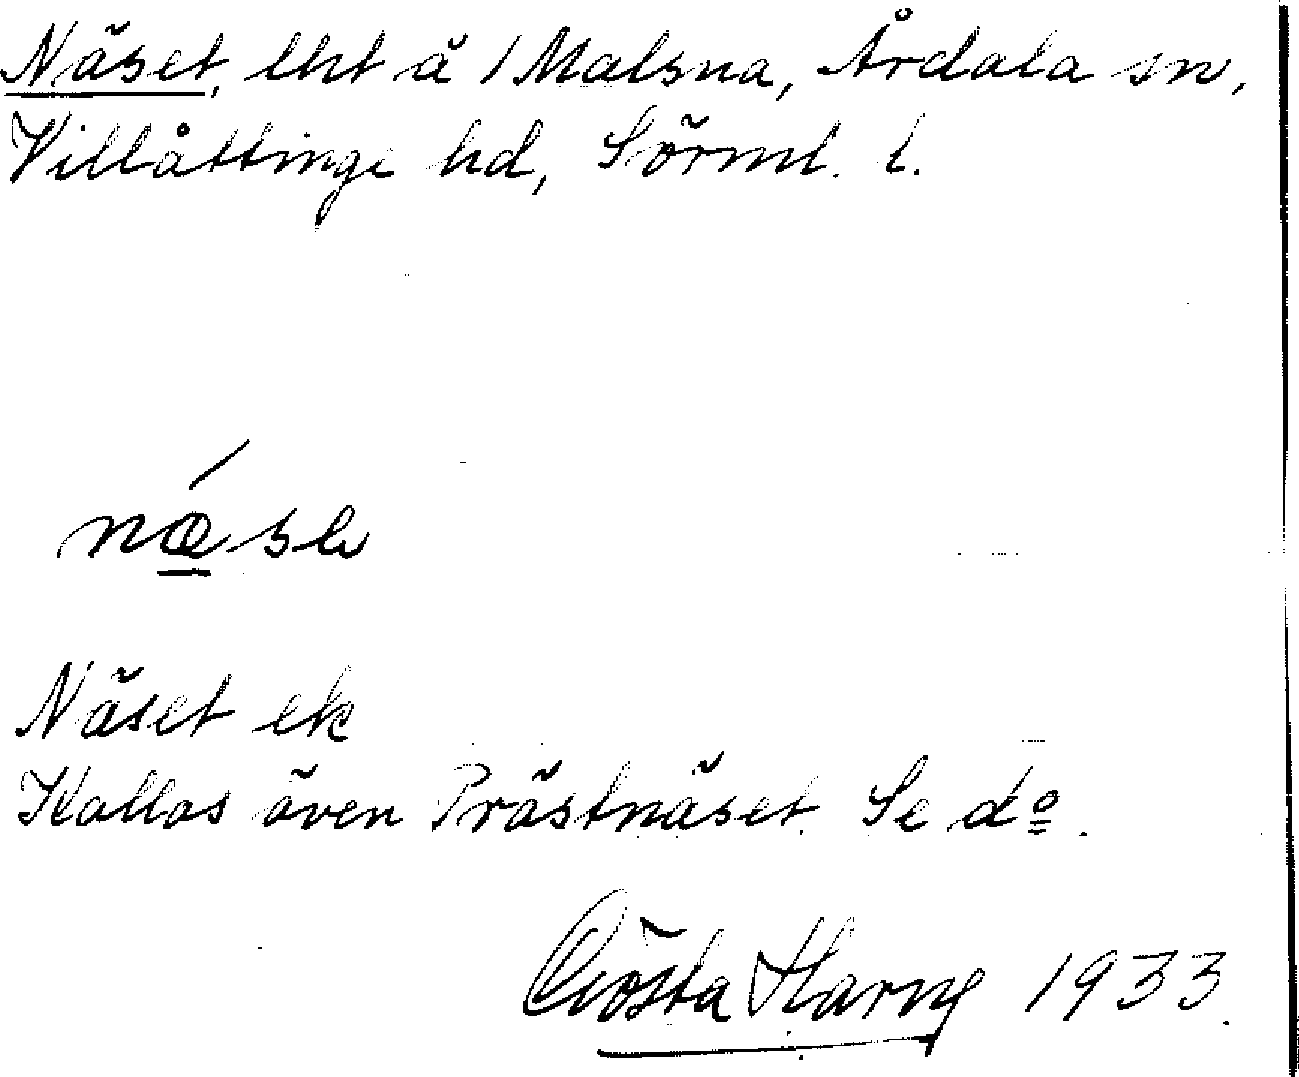 Näset, lht å 1 Malsna, Årdala sn,
Villåttinge hd, Sörml. l.
Näset ek
Kallas även Prästnäset. Se dº.
Gösta Harng 1933.